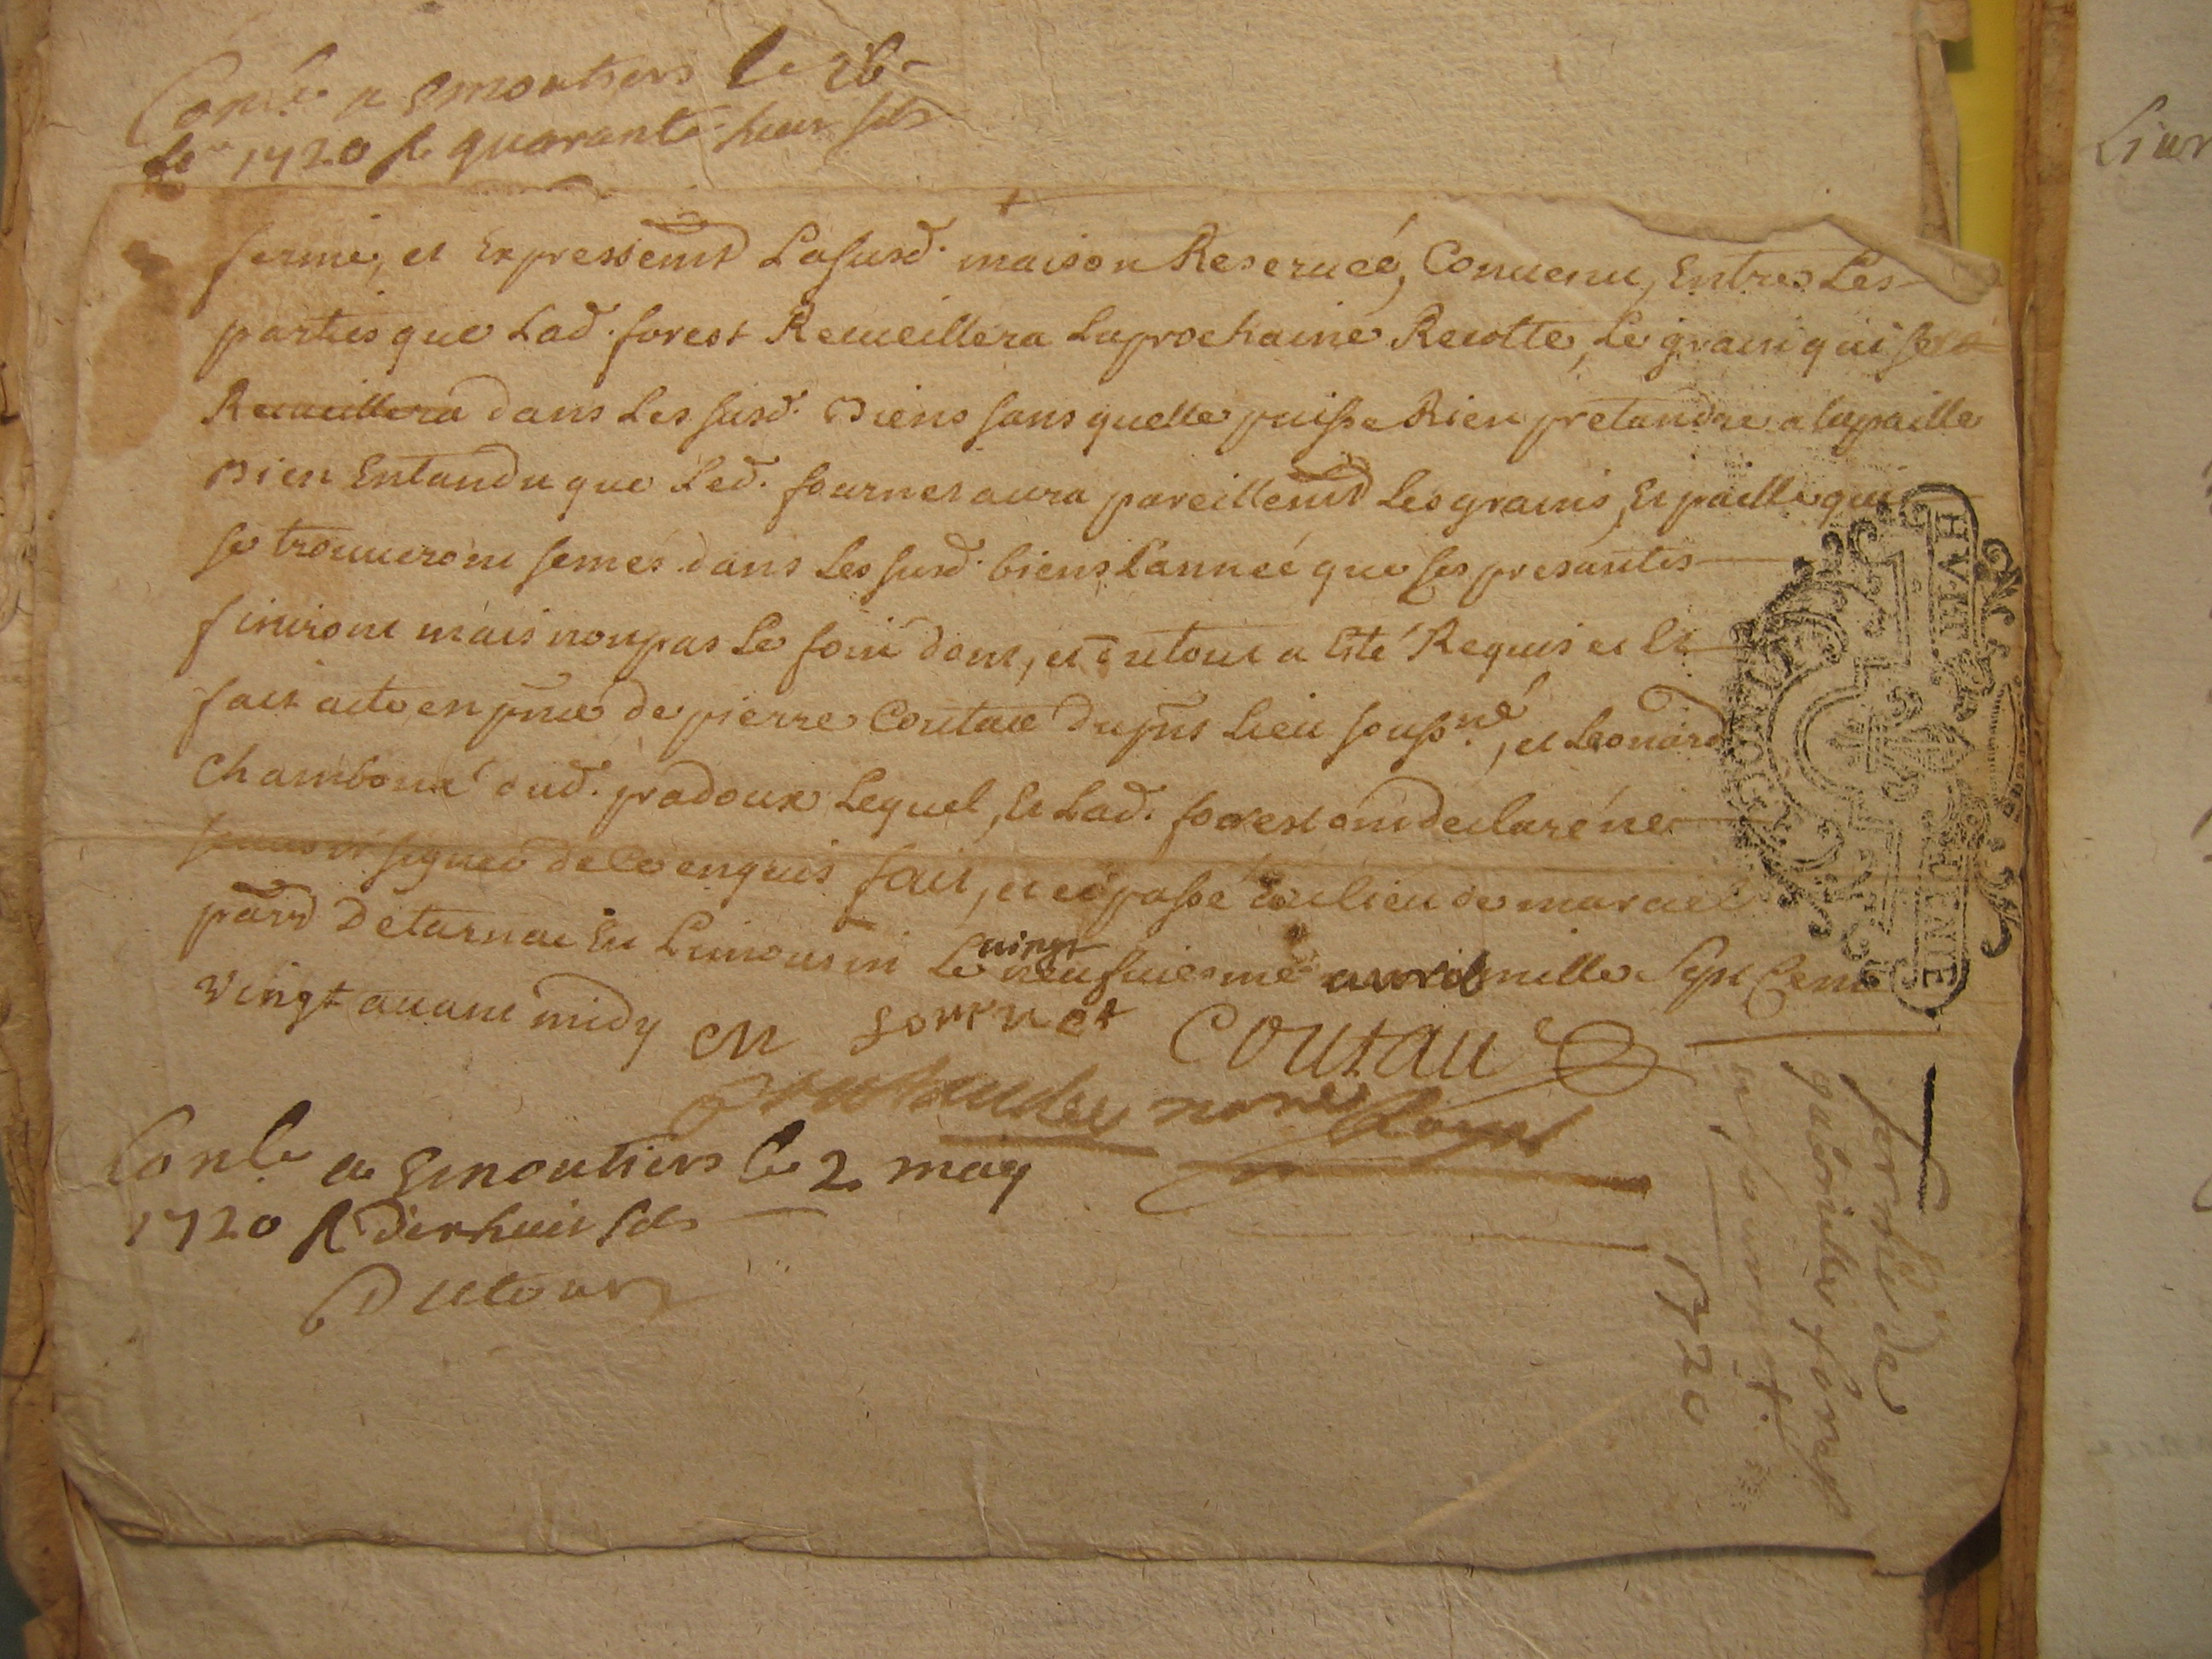 Conlé a Eymoutiers le 26
1720 R quarante huit sols
ferme, et Expressemt Lasusd. maison Reservéé, Convenu, Entres Les
parties que Lad. forest Recueillera Laprochaine Recolte, Le grain qui sera
Recueillera dans Les susd. Biens sans quelle puisse Rien pretandre a lapaille
Bien Entandu que Led. fournet aura pareillemt Les grains, Et paille qui
se trouveront semés dans Les susd. biens, Lannéé que ses presantes
finiront mais nonpas Le foin dont, et du tout a Esté Requis et Et
fait acte en pnce de pierre Coutaue dupnt Lieu soussné, et Leonard
Chamboux dud. pradoux Lequel, Et Lad. forest ont declaré ne
signer de Ce enquis fait, et passé au lieu de
parr De tarnac En Limousin Le vingt neufviesme avril mille Sept Cent
vingt avant midy
M fornet Coutau
nore Royal
Conlé a Eymoutiers le 2 may
1720 R dixhuit sols
Dutour
HUIT D
ferme de
forest
a fournet.
1720
Livr